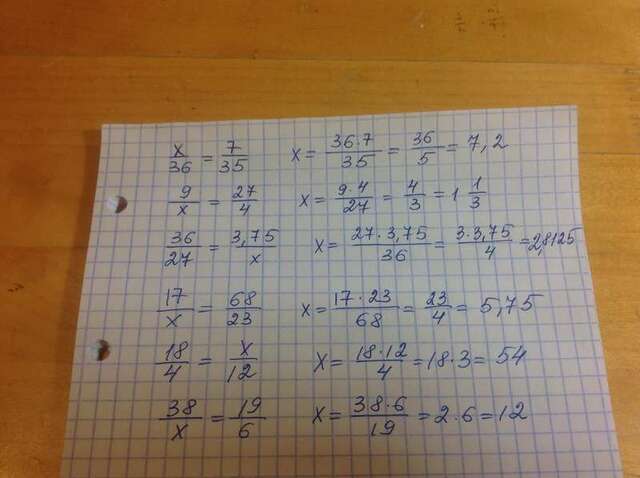 x/36 = 7/35 x = 36·7/35 = 36/5 = 7,2
9/x = 27/4 x = 9·4/27 = 4/3 = 1 1/3
36/27 = 3,75/x x = 27·3,75/36 = 3·3,75/4 = 2,8125
17/x = 68/23 x = 17·23/68 = 23/4 = 5,75
18/4 = x/12 x = 18·12/4 = 18·3 = 54
38/x = 19/6 x = 38·6/19 = 2·6 = 12